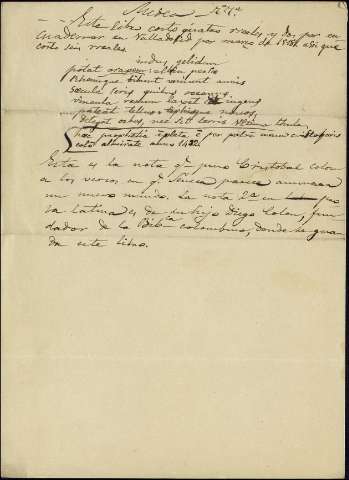 Medea
Este libro costo quatro reales y dos por en
cuadernar en Valladolid por março de 1518 asi que
costo seis rreales
indus gelidum
potat araxem: albin persie
Rhenumque bibunt venient annis
secula seris quibus oceanus
vincula rerum laxet et ingens
pateat tellus: tiphisque novos
Detegat orbes nec sit terris ultima thule
hec prophetia expleta e per patrem meum cristoforo
colon almirante anno 1492
Esta es la nota q. puso Cristobal Colon
a los versos en q. Seneca parece anunciar
un nuevo mundo. La nota 2ª en
la latina es de su hijo Diego Colon, fun-
dador de la Bibca colombina, donde se guar-
da este libro.